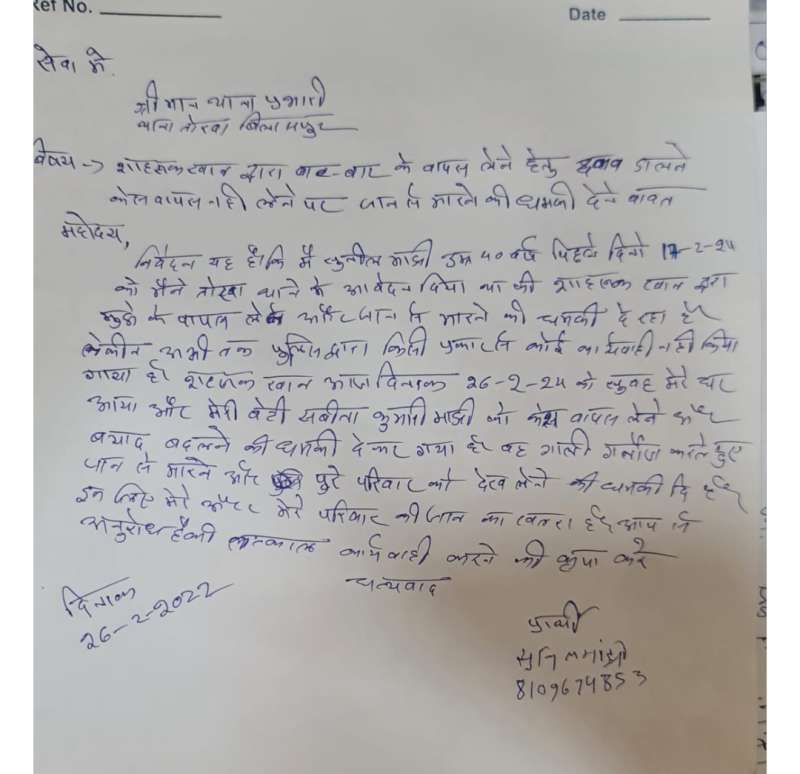 Ref No.
Date
सेवा में.
श्रीमान थाना प्रभारी
थाना तोरवा बिलासपुर
विषय -> शाहरुख खान द्वारा बार-बार केस वापस लेने हेतु दबाव डालने
केस वापस नही लेने पर जान से मारने की धमकी देने बावत
महोदय,
निवेदन यह है कि मैं सुनील माझी उम्र 40 वर्ष पिछले दिनो 17-2-24
को मैने तोरवा थाने मे आवेदन दिया था की शाहरुख खान द्वारा
मुझे केस वापस लेने और जान से मारने की धमकी दे रहा है
लेकीन अभी तक पुलिस द्वारा किसी प्रकार से कोई कार्यवाही नही किया
गया है शाहरुख खान आज दिनांक 26-2-24 को सुबह मेरे घर
आया और मेरी बेटी सबीता कुमारी माझी को केस वापस लेने और
बयाद बदलने की धमकी दे कर गया है वह गाली गलौज करते हुए
जान से मारने और पुरे परिवार को देख लेने की धमकी दि है
इस लिए मेरे और मेरे परिवार की जान का खतरा है आप से
अनुरोध है की तत्काल कार्यवाही करने की कृपा करे
धन्यवाद
दिनांक
26-2-2022
प्रार्थी
सुनिल मांझी
8109674853